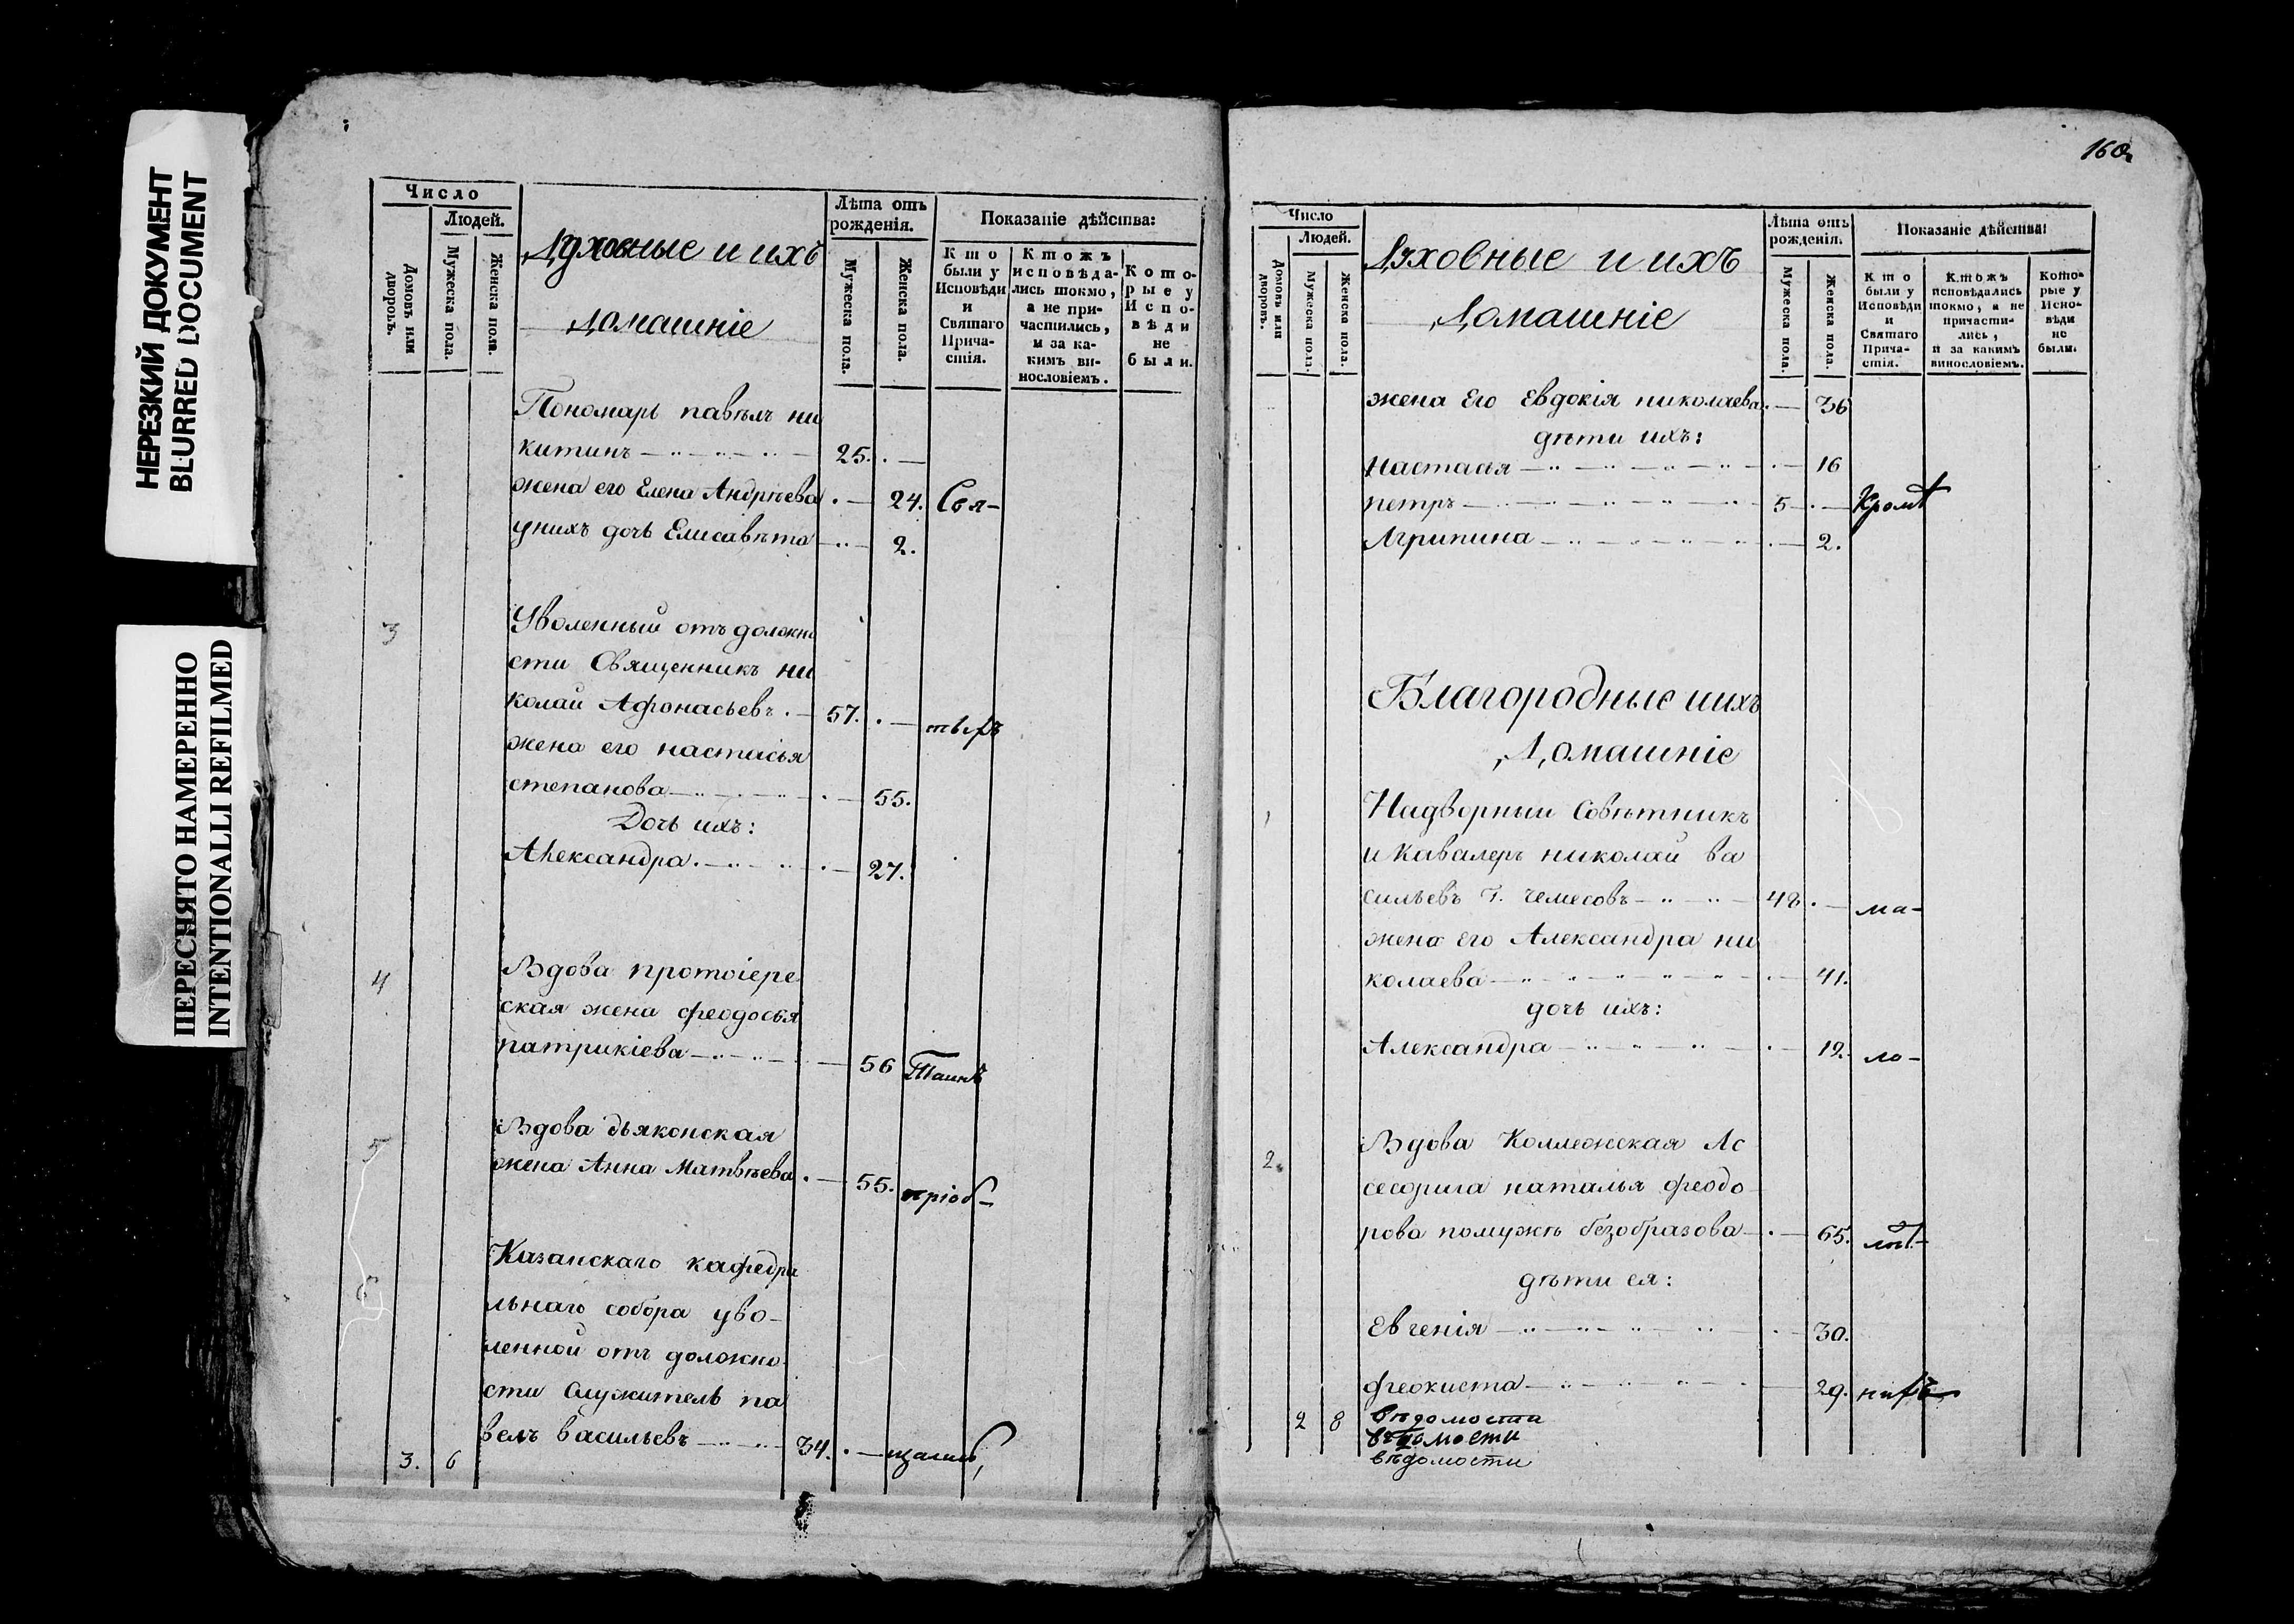 НЕРЕЗКИЙ ДОКУМЕНТ
BLURRED DOCUMENT
ПЕРЕСНЯТО НАМЕРЕННО
INTENTIONALLI REFILMED
Число
Людей.
Домовъ или дворовъ.
Мужеска пола.
Женска пола.
Духовные и ихъ
Домашніе
Лѣта отъ рожденія.
Мужеска пола.
Женска пола.
Показаніе дѣйства:
Кто были у Исповѣди и Святаго Прича-стія.
Ктожъ исповѣда-лись токмо, а не при-частились, и за ка-кимъ ви-нословіемъ.
Кото-рые у Испо-вѣди не были.
Пономарь павѣлъ ни
китинъ 25.
жена его Елена Андрѣева 24. Свя-
унихъ дочь Елисавѣта 2.
3 Уволенный отъ должно
сти Священникъ ни
колай Афонасьевъ 57.
жена его настасья
степанова 55.
Дочь ихъ:
Александра 27.
4 Вдова протоіере
ская жена феодосья
патрикіева 56 Таинъ
5 Вдова дьяконская
жена Анна Матвѣева 55. пріоб-
6 Казанскаго кафедра
льнаго собора уво-
ленной отъ должно-
сти служитель па
велъ васильевъ 34. щались,
3. 6
160
Число
Людей.
Домовъ или дворовъ.
Мужеска пола.
Женска пола.
Духовные и ихъ
Домашніе
Лѣта отъ рожденія.
Мужеска пола.
Женска пола.
Показаніе дѣйства:
Кто были у Исповѣди и Святаго Прича-стія.
Ктожъ исповѣдались токмо, а не причасти-лись, и за какимъ винословіемъ.
Кото-рые у Испо-вѣди не были.
жена Его Евдокія николаева 36
дѣти ихъ:
Настасья 16
петръ 5 Кромѣ
Агрипина 2.
Благородные иихъ
Домашніе
1 Надворный Совѣтникъ
и Кавалеръ николай ва
сильевъ г. чемесовъ 48 ма-
жена его Александра ни
колаева 41.
дочь ихъ:
Александра 12. ло-
2. Вдова Коллежская Ас
сесорша наталья феодо
рова помужѣ безобразова 65. лѣт-
дѣти ея:
Евгенія 30.
феоктиста 29.
2 8 вѣдомости
вѣдомости
вѣдомости